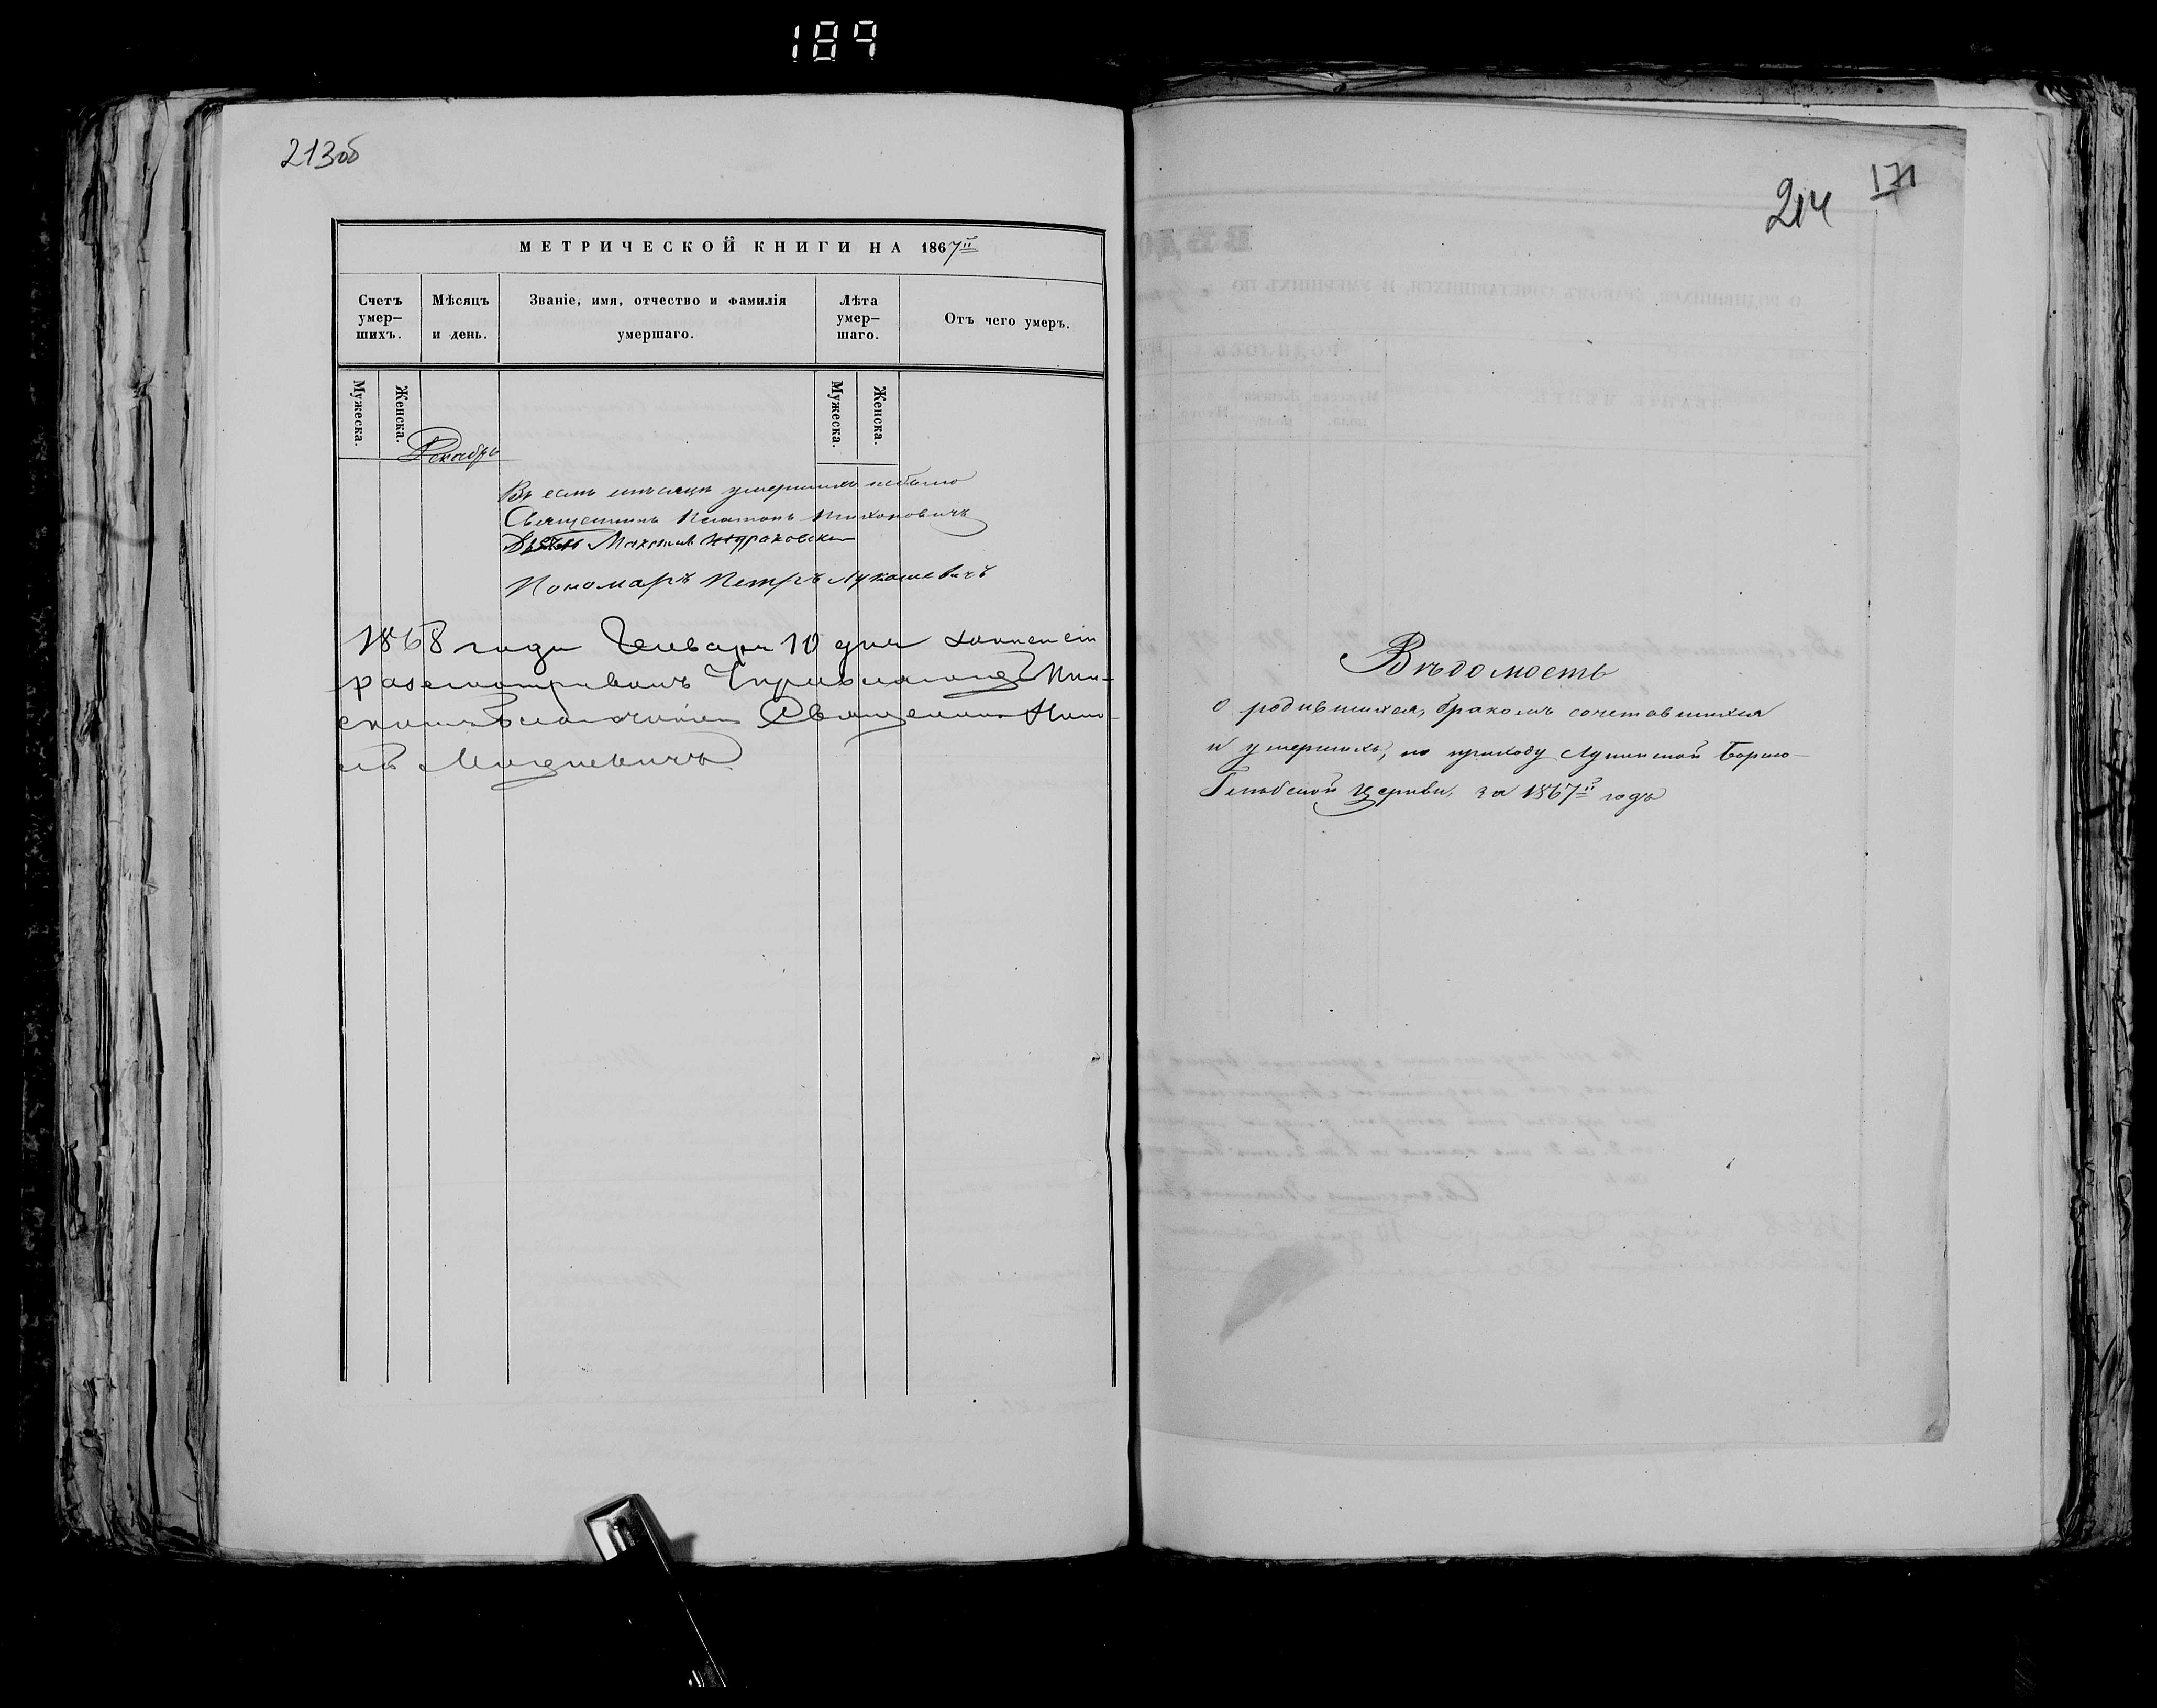 189
213об
МЕТРИЧЕСКОЙ КНИГИ НА 1867й
Счетъ умер-шихъ.
Мѣсяцъ и день.
Званіе, имя, отчество и фамилія умершаго.
Лѣта умер-шаго.
Отъ чего умеръ.
Мужеска.
Женска.
Мужеска.
Женска.
Декабрь
Въ семъ мѣсяцѣ умершихъ небыло
Священникъ Платонъ Тихоновичъ
Пономарь Петръ Лукашевичъ
1868 года Генваря 10 дня
разсматривалъ
Священникъ
214
171
Вѣдомость
о родившихся, бракомъ сочетавшихся
и умершихъ, по приходу Лунинской Борисо-
Глѣбской Церкви, за 1867й годъ